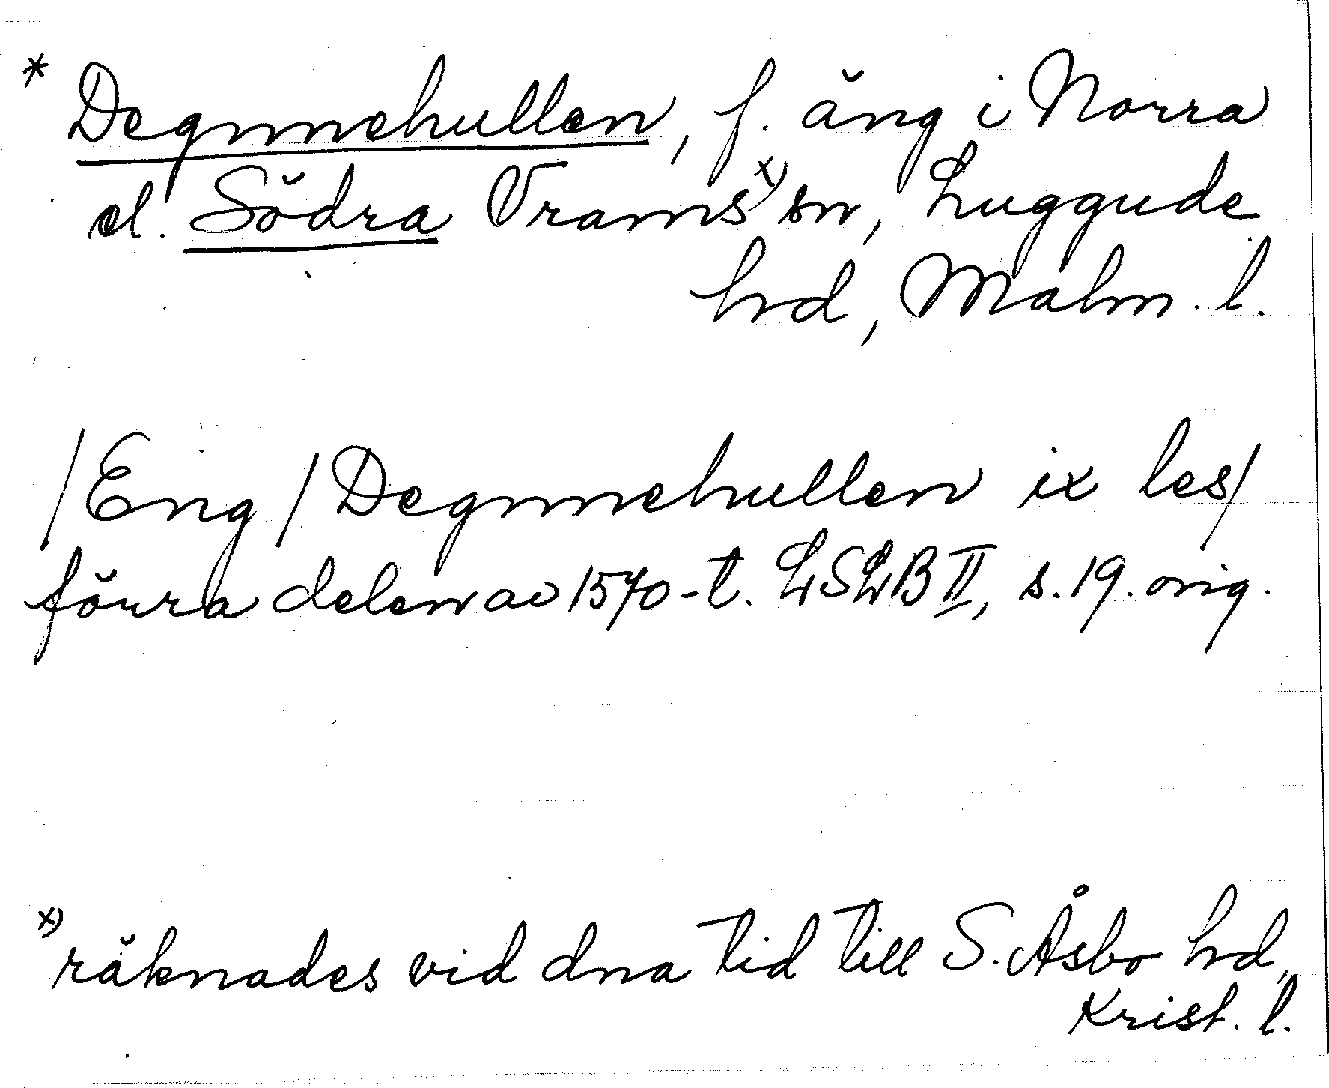 * Degnnehullen, f. äng i Norra
el. Södra Vrams x) sn, Luggude
hrd, Malm. l.
/Eng/ Degnnehullen ix les/
förra delen av 1570-t. LSLB II, s. 19. orig.
x) räknades vid dna tid till S. Åsbo hrd,
Krist. l.